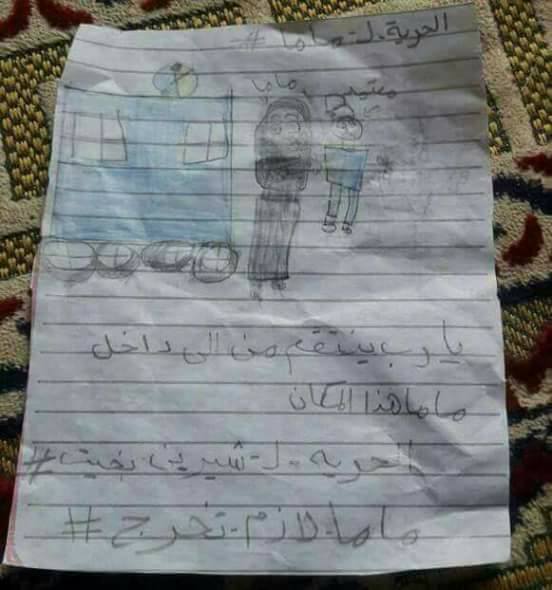 الحرية_لـ_ماما #
ماما
يارب ينتقم من الى داخل
ماما هذا المكان
الحريه_لـ_شيرين_بخيت #
ماما_لازم_تخرج #